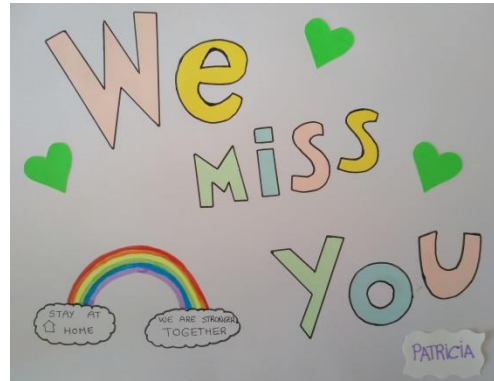 We
miss
YOU
STAY AT
HOME
WE ARE STRONGER
TOGETHER
PATRICIA